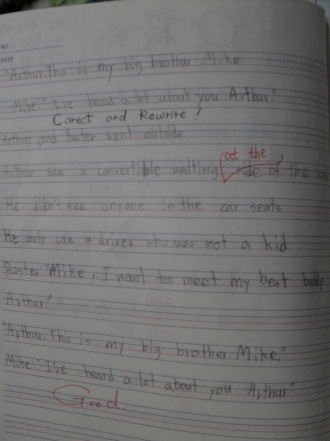 "Arthur. this is my big brother Mike.
Mike:"I've heard a lot about you Arthur."
Corect and Rewrite!
Arthur and Buster went outside
Arthur saw a convertible waiting at the side of the
He didn't see anyone in the car seats.
He only saw a driver who was not a kid
Buster "Mike, I want to meet my best buddy
Arthur."
"Arthur. this is my big brother. Mike."
Mike:"I've heard a lot about you Arthur."
Good.